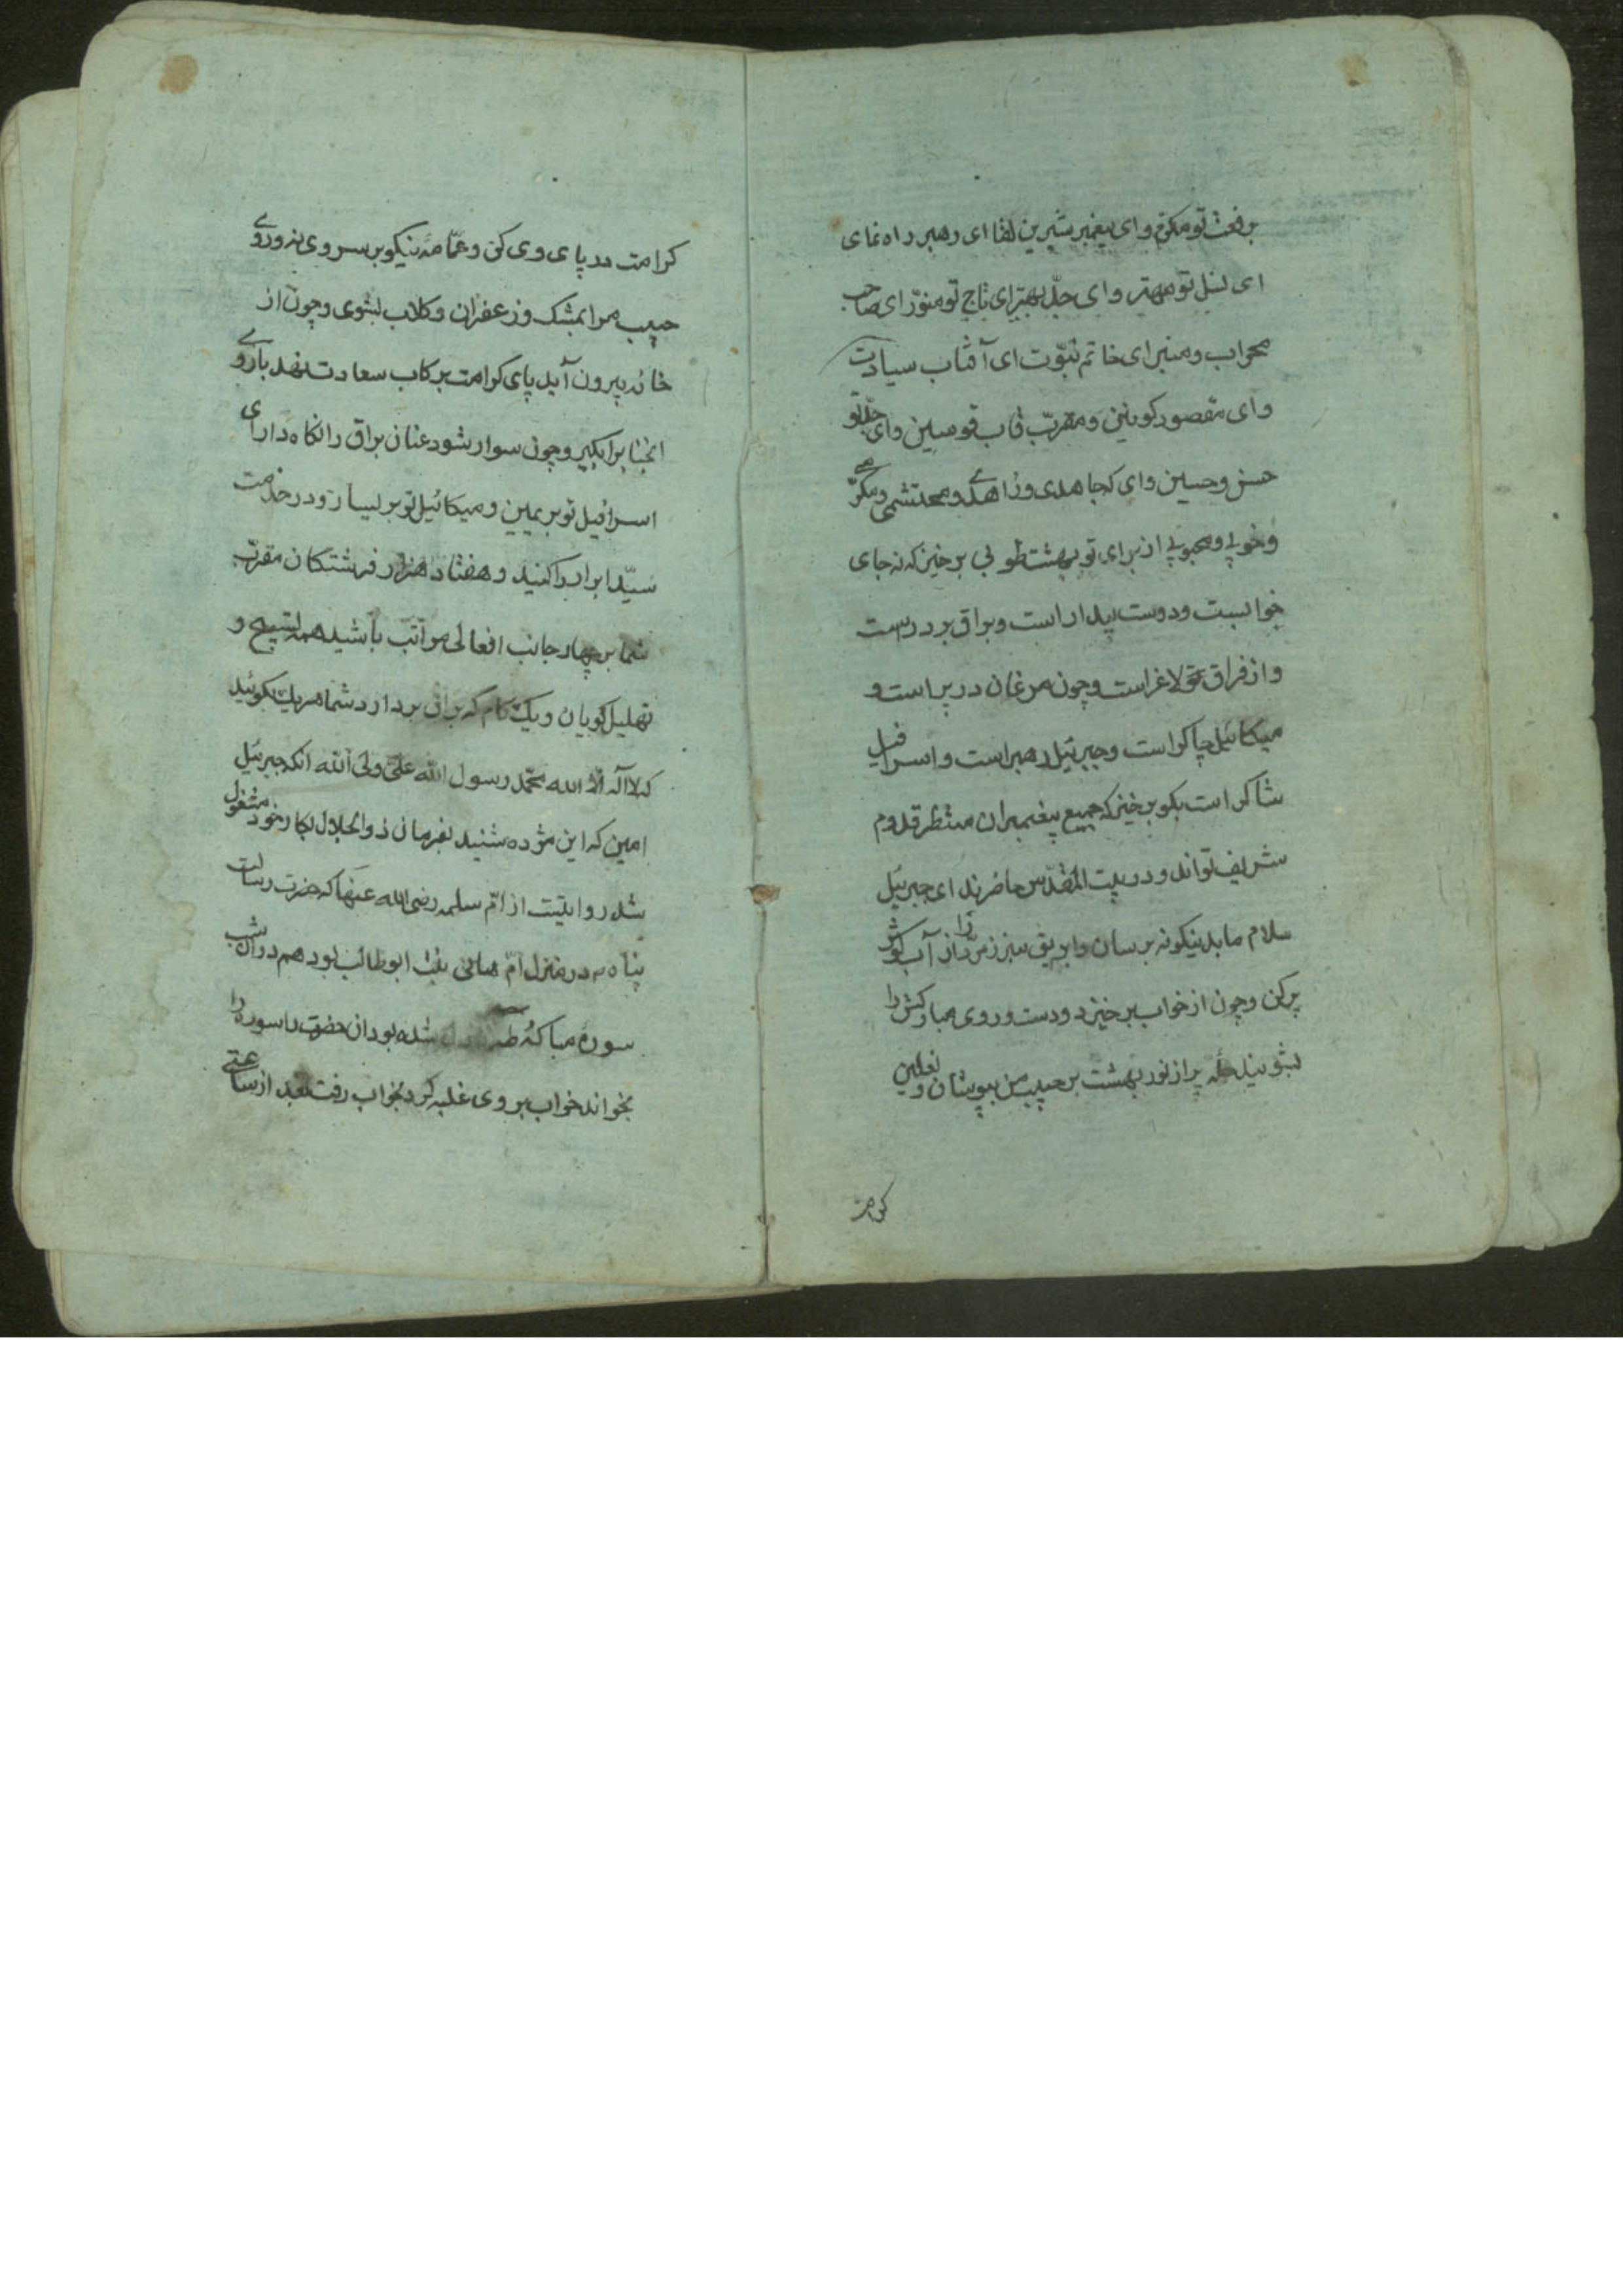 برفعت تو مکرّم و ای پیغمبر شیرین لقا ای رهبر راه نمای
ای نسل تو مهتر و ای جدّ بهتر ای تاج تو منوّر ای صاحب
محراب و منبر ای خاتم نبوّت ای آفتاب سیادت
و ای مقصود کونین و مقرّب قاب قوسین و ای جدّ تو
حسن و حسین و ای که جاهدی و زاهدے و محتشمی و مکرّمے
و خوبے و محبوبے از برای تو بهشت طوبی برخیز که نه جای
خوابست و دوست بیدار است و براق بر در است
و از فراق تو لاغر است و چون مرغان در پر است و
میکائیل چاکر است و جبرئیل رهبر است و اسرافیل
شاکر است بکو برخیز که جمیع پیغمبران منتظر قدوم
شریف تواند و در بیت المقدّس حاضرند ای جبرئیل
سلام ما بدینکونه برسان و ابریق سبز زمرّد را از آب کوثر
پر کن و چون از خواب برخیزد و دست و روی مبارکش را
بشوئید حله پر از نور بهشت بر حبیب من بپوشان و نعلین
کرامت
کرامت در پای وی کن و عمّامهٔ نیکو بر سر وی نه و روے
حبیب مرا بمشک و زعفران و کلاب بشوی و چون از
خانه بیرون آید پای کرامت بر کاب سعادت نهد بازوے
انجناب را بکیر و چون سوار شود عنان براق را نکاه دار ای
اسرافیل تو بر یمین و میکائیل تو بر یسار او در خدمت
سیّد ابرار باشید و هفتاد هزار فرشتکان مقرّب
شما بر چهار جانب افعالی مراتب باشید همه تسبیح و
تهلیل کویان و یک کام که براق بردارد شما هر یک بکوئید
که لا اله الّا الله محمّد رسول الله علیّ ولی الله انکه جبرئیل
امین که این مژده شنید بفرمان ذوالجلال بکار خود مشغول
شد روایتست از امّ سلمه رضی الله عنها که حضرت رسالت
پناه در منزل امّ هانی بنت ابوطالب بود هم در ان شب
سورهٔ مبارکهٔ طه شده بود ان حضرت را سوره را
بخواند خواب بر وی غلبه کرد بخواب رفت بعد از ساعتے